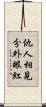 仇人相見
分外眼紅